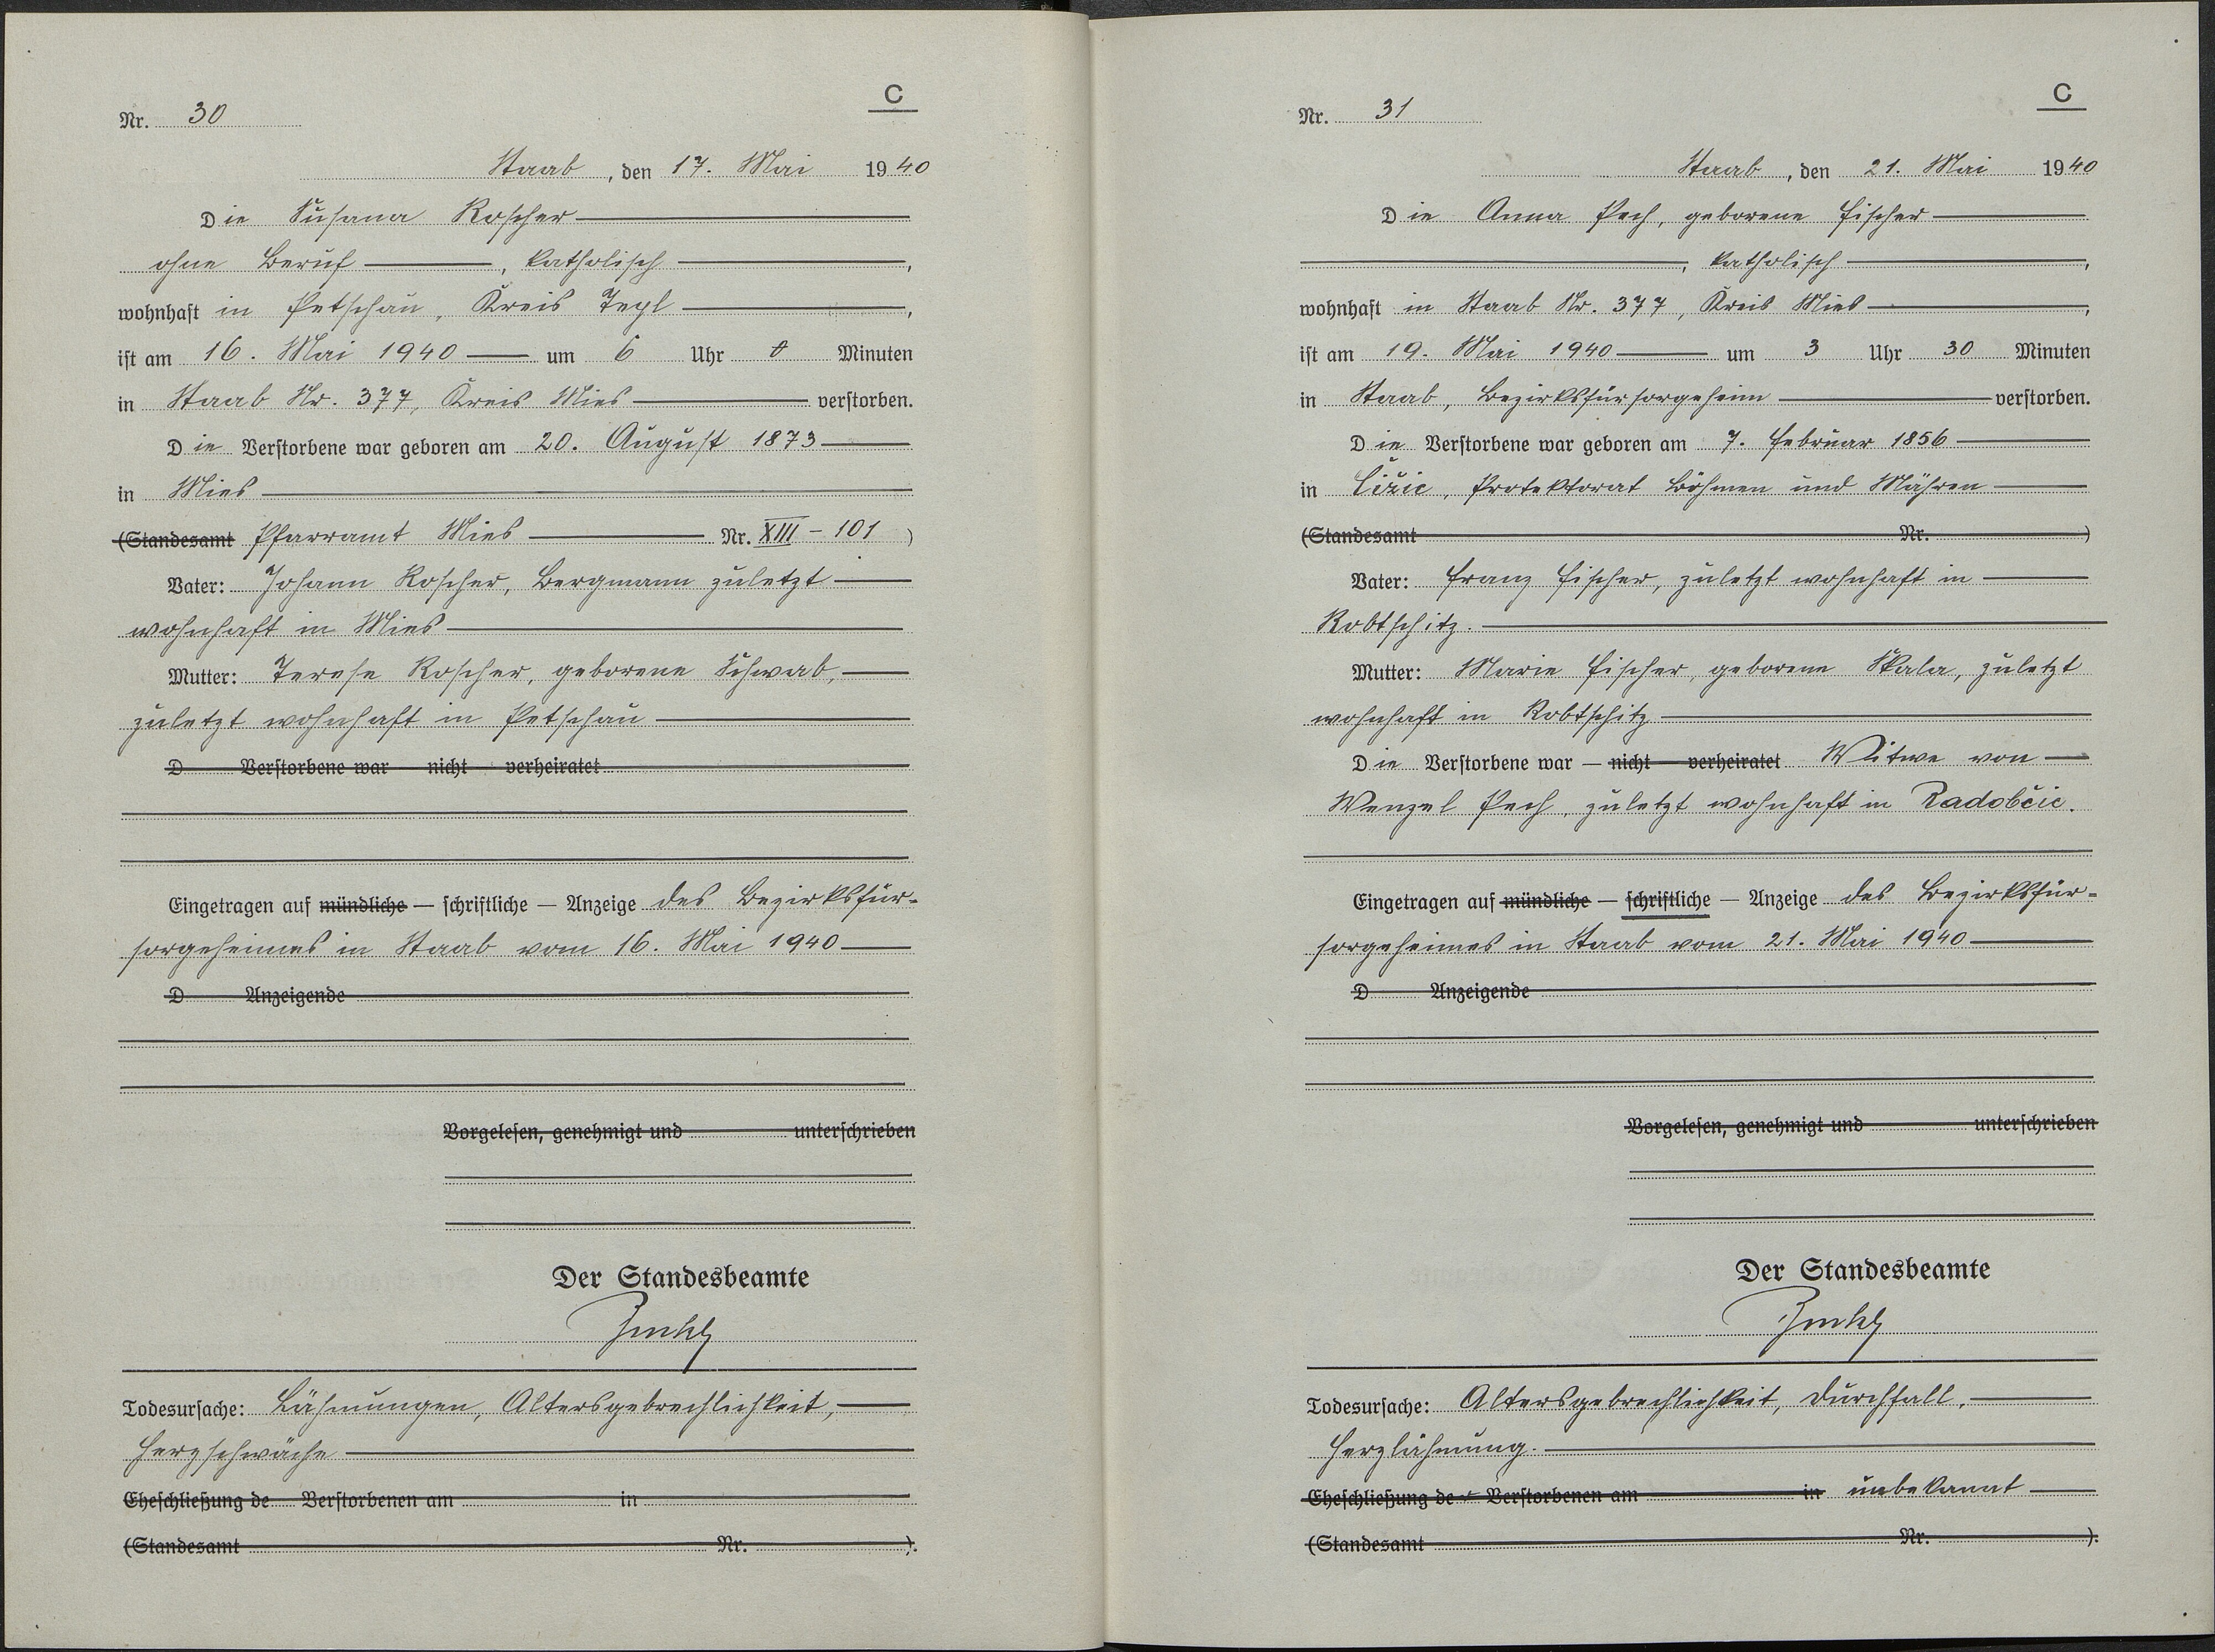 C
Nr. 30
Staab, den 17. Mai 1940
Die Susana Roscher
ohne Beruf, katholisch,
wohnhaft in Petschau, Kreis Tepl,
ist am 16. Mai 1940 um 6 Uhr 0 Minuten
in Staab Nr. 377, Kreis Mies verstorben.
Die Verstorbene war geboren am 20. August 1873
in Mies
(Standesamt Pfarramt Mies Nr. XIII - 101)
Vater: Johann Roscher, Bergmann zuletzt
wohnhaft in Mies
Mutter: Terese Roscher, geborene Schwab,
zuletzt wohnhaft in Petschau
D Verstorbene war nicht verheiratet
Eingetragen auf mündliche — schriftliche — Anzeige des Bezirksfür-
sorgeheimes in Staab vom 16. Mai 1940
D Anzeigende
Vorgelesen, genehmigt und unterschrieben
Der Standesbeamte
Todesursache: Lähmungen, Altersgebrechlichkeit,
Herzschwäche
Eheschließung de Verstorbenen am in
(Standesamt Nr. ).
C
Nr. 31
Staab, den 21. Mai 1940
Die Anna Pech, geborene Fischer
, katholisch,
wohnhaft in Staab Nr. 377, Kreis Mies,
ist am 19. Mai 1940 um 3 Uhr 30 Minuten
in Staab, Bezirksfürsorgeheim verstorben.
Die Verstorbene war geboren am 7. Februar 1856
in Čižic, Protektorat Böhmen und Mähren
(Standesamt Nr. )
Vater: Franz Fischer, zuletzt wohnhaft in
Robtschitz.
Mutter: Marie Fischer, geborene Skala, zuletzt
wohnhaft in Robtschitz
Die Verstorbene war — nicht verheiratet Witwe von
Wenzel Pech, zuletzt wohnhaft in Radobčic.
Eingetragen auf mündliche — schriftliche — Anzeige des Bezirksfür-
sorgeheimes in Staab vom 21. Mai 1940
D Anzeigende
Vorgelesen, genehmigt und unterschrieben
Der Standesbeamte
Todesursache: Altersgebrechlichkeit, Durchfall,
Herzlähmung.
Eheschließung der Verstorbenen am in unbekannt
(Standesamt Nr. ).